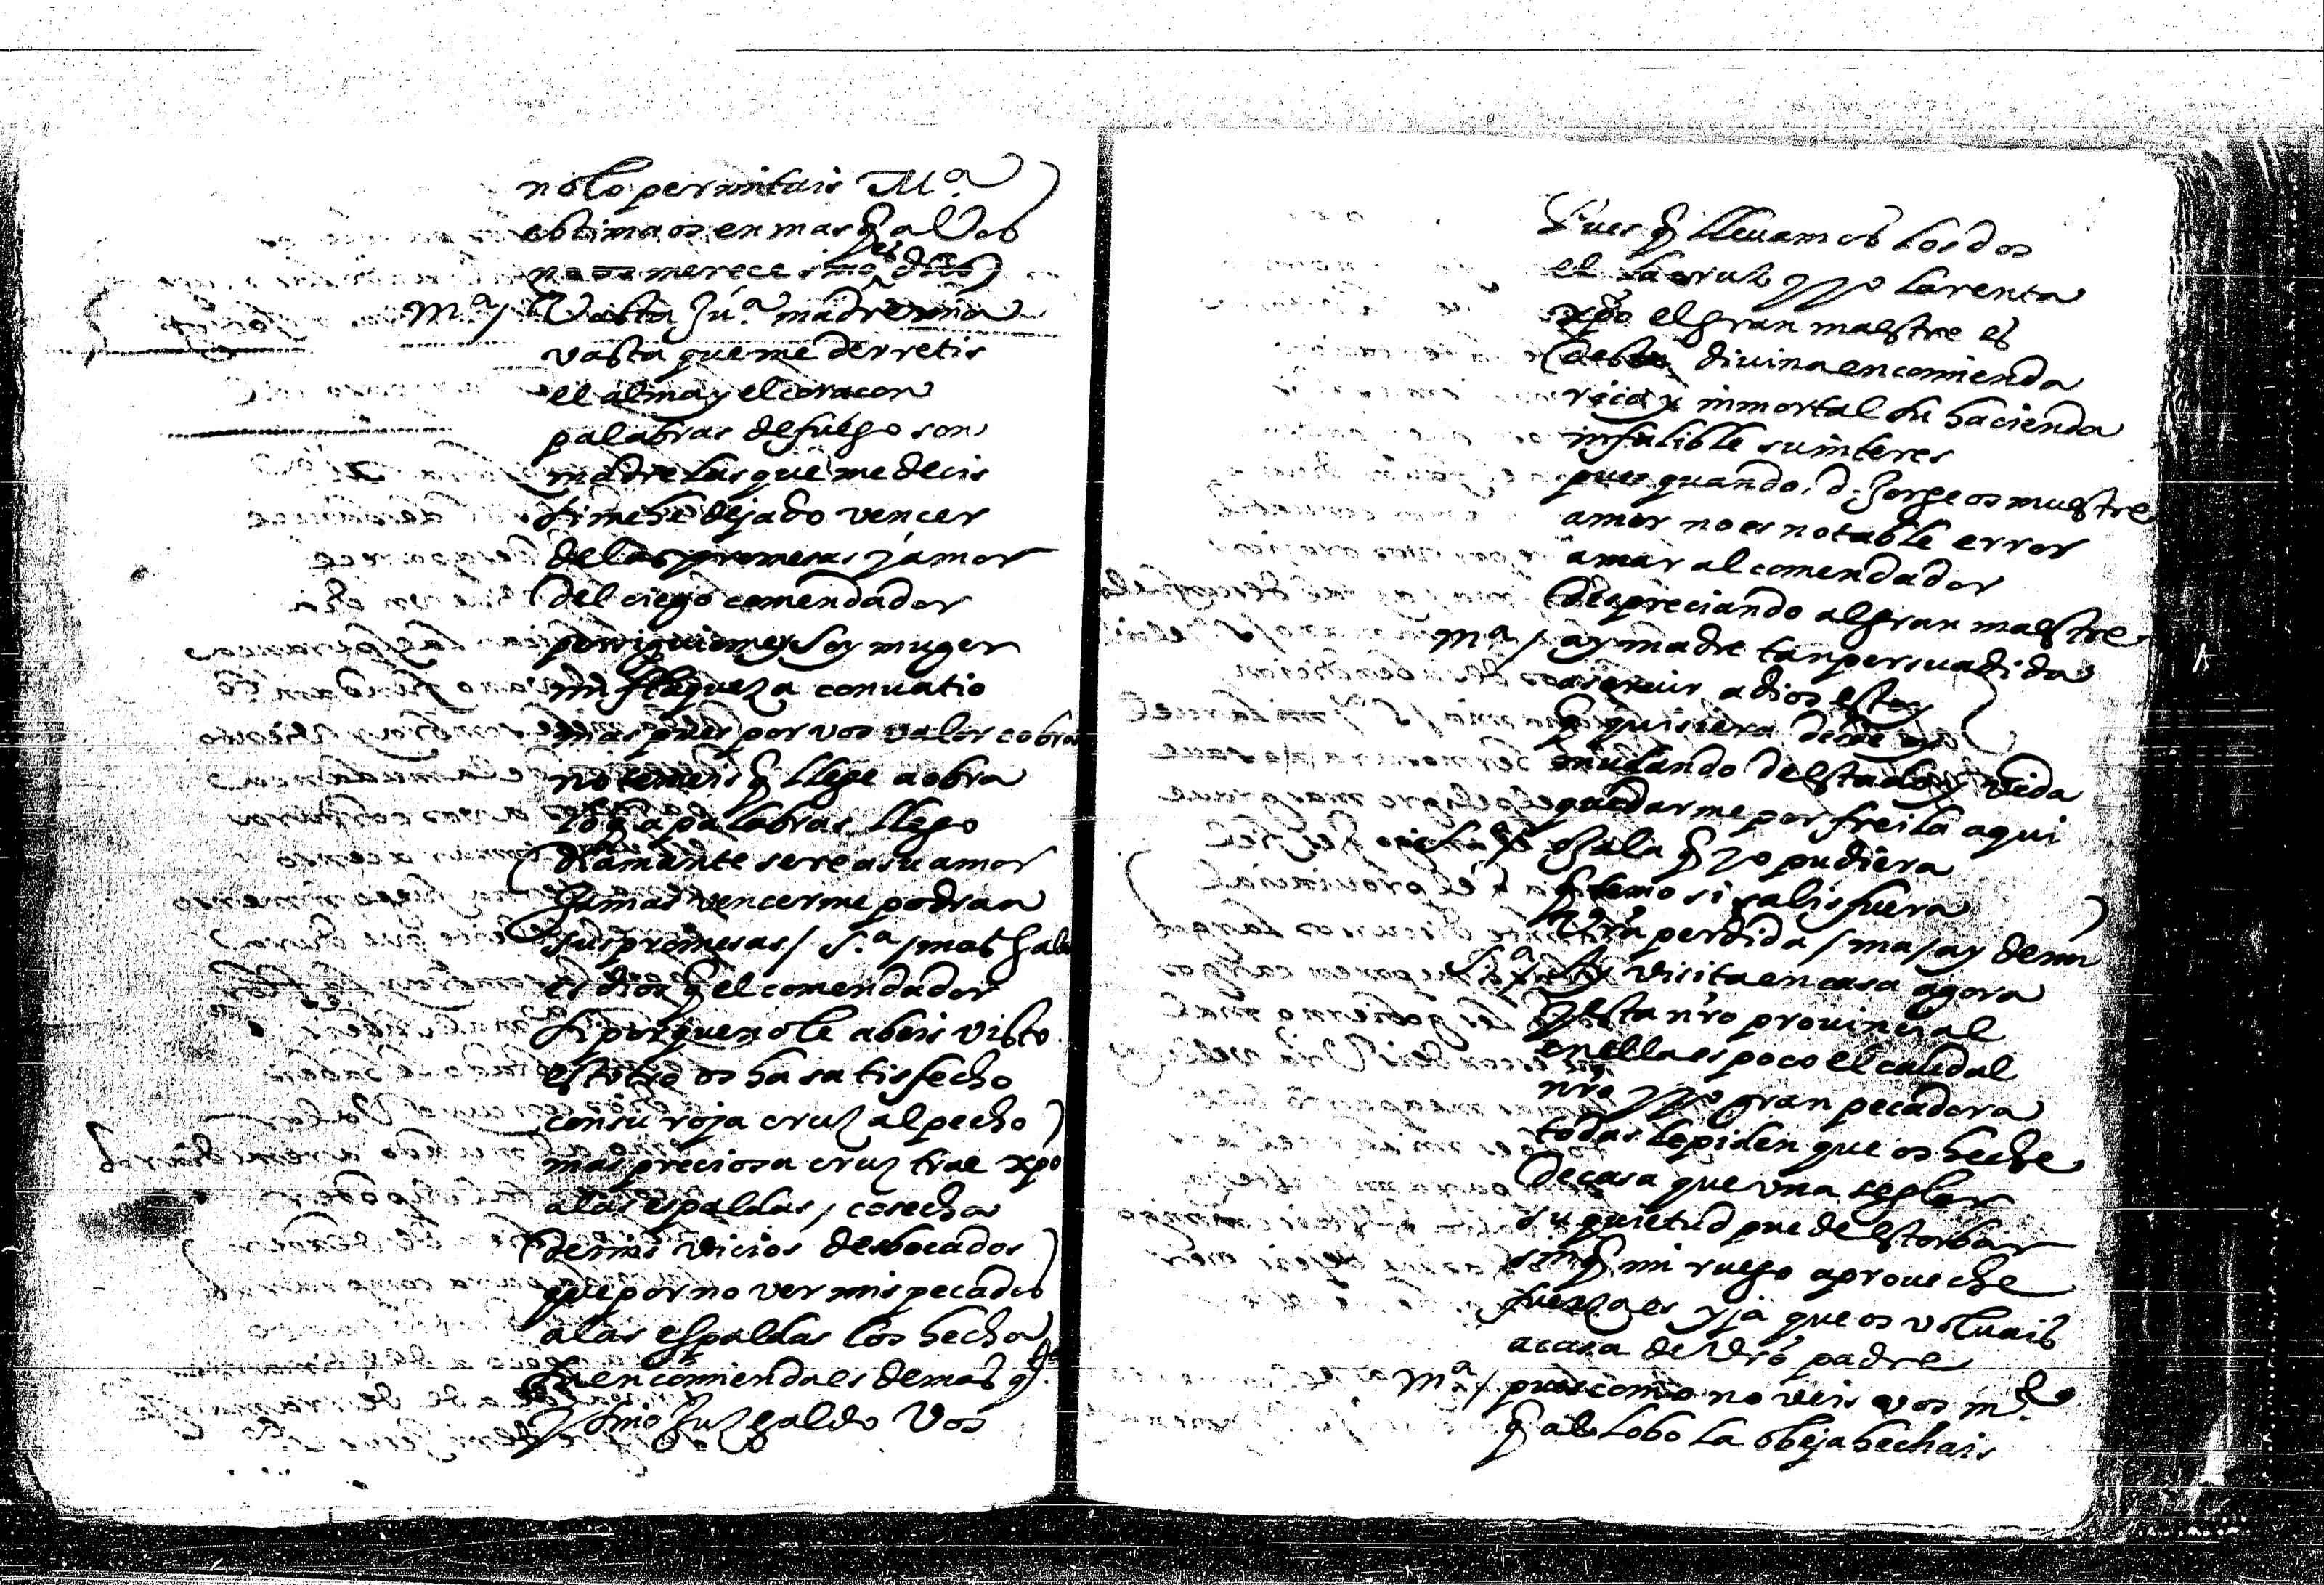 no lo permitais Mª
estimaos en mas q̃ a Vos
no os merece sino es dios
Mª / Vasta Juª madre mia
vasta que me derretis
el alma y el coraçon
palabras de fuego son
madre las que me decis
si me he dejado vencer
de las promesas y amor
del ciego comendador
persiguiome soy muger
mi flaqueza convatio
mas pues por vos valor cobra
no temeis q̃ llege a obra
lo q̃ a palabras llego
diamante sere a su amor
jamas vencerme podran
sus promesas / sª / mas gal
es dios q̃ el comendador
si porque no le abeis visto
estotro os ha satisfecho
con su roja cruz al pecho
mas preciosa cruz trae xpo
a las espaldas / cosecha
de mis vicios desbocados
que por no ver mis pecados
a las espaldas los hecha
su encomienda es de mas
y sino juzgaldo Vos
Pues q̃ llevamos los dos
el la cruz y yo la renta
xpo el gran maestre es
desta divina encomienda
rica y inmortal su hacienda
infalible su interes
pues quando d. Jorge os muestre
amor no es notable error
amar al comendador
despreciando al gran maestre
Mª / ay madre tan persuadida
a servir a dios estoy
q̃ quisiera desde oy
mudando de estado y vida
quedarme por freila aqui
sª / ojala q̃ yo pudiera
q̃ temo si salis fuera
vrã perdida / ma / ay de mi
sª / Ay visita en casa agora
y esta nrõ provincial
en ella es poco el caudal
nrõ y yo gran pecadora
todas le piden que os heche
de casa que una seglar
su quietud puede estorbar
sin q̃ mi ruego aproveche
fuerza es ya que os volvais
a casa de vrõ padre
Mª / pues como no veis vos mᵉ
q̃ al lobo la obeja hechais